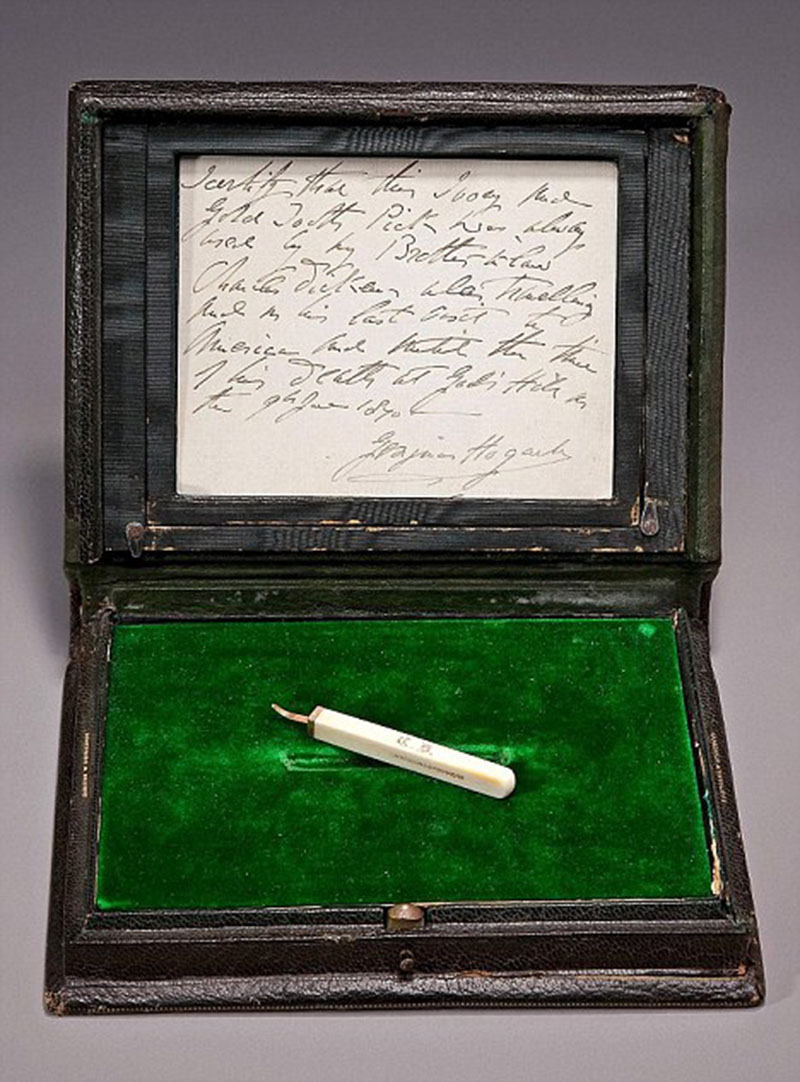 I certify that this Ivory and
Gold Tooth Pick was always
used by my Brother in law
Charles Dickens when travelling
and on his last visit to
America and until the time
of his death at Gad's Hill on
the 9th June 1870
Georgina Hogarth
C. D.